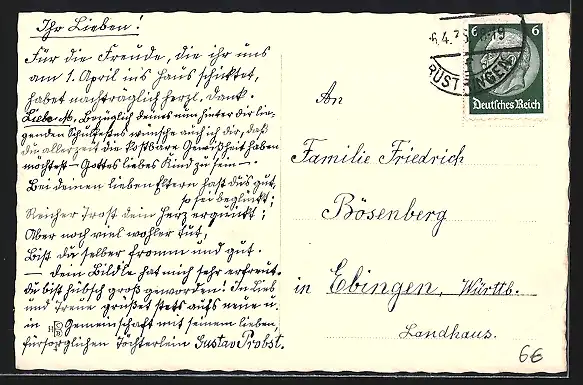 Ihr Lieben!
Für die Freude, die ihr uns
am 1. April ins Haus schicktet,
habet nachträglich herzl. Dank.
Liebe bezüglich deines nun hinter dir lie-
genden Schulfestes wünsche auch ich dir, daß
du allerzeit die kostbare Gewißheit haben
möchtest – Gottes liebes Kind zu sein –.
Bei deinen lieben Eltern hast du's gut,
so sei beglückt;
Reicher Trost dein Herz erquickt;
Aber noch viel wohler tut,
Bist du selber fromm und gut.
– Dein Bildle hat mich sehr erfreut.
du bist hübsch groß geworden! In Lieb
und Treue grüßet stets aufs neue u.
in Gemeinschaft mit seinem lieben,
fürsorglichen Töchterlein Gustav Probst.
6.4.
RÜSTRINGEN
6 6
Deutsches Reich
An
Familie Friedrich
Bösenberg
in Ebingen, Württb.
Landhaus.
6€